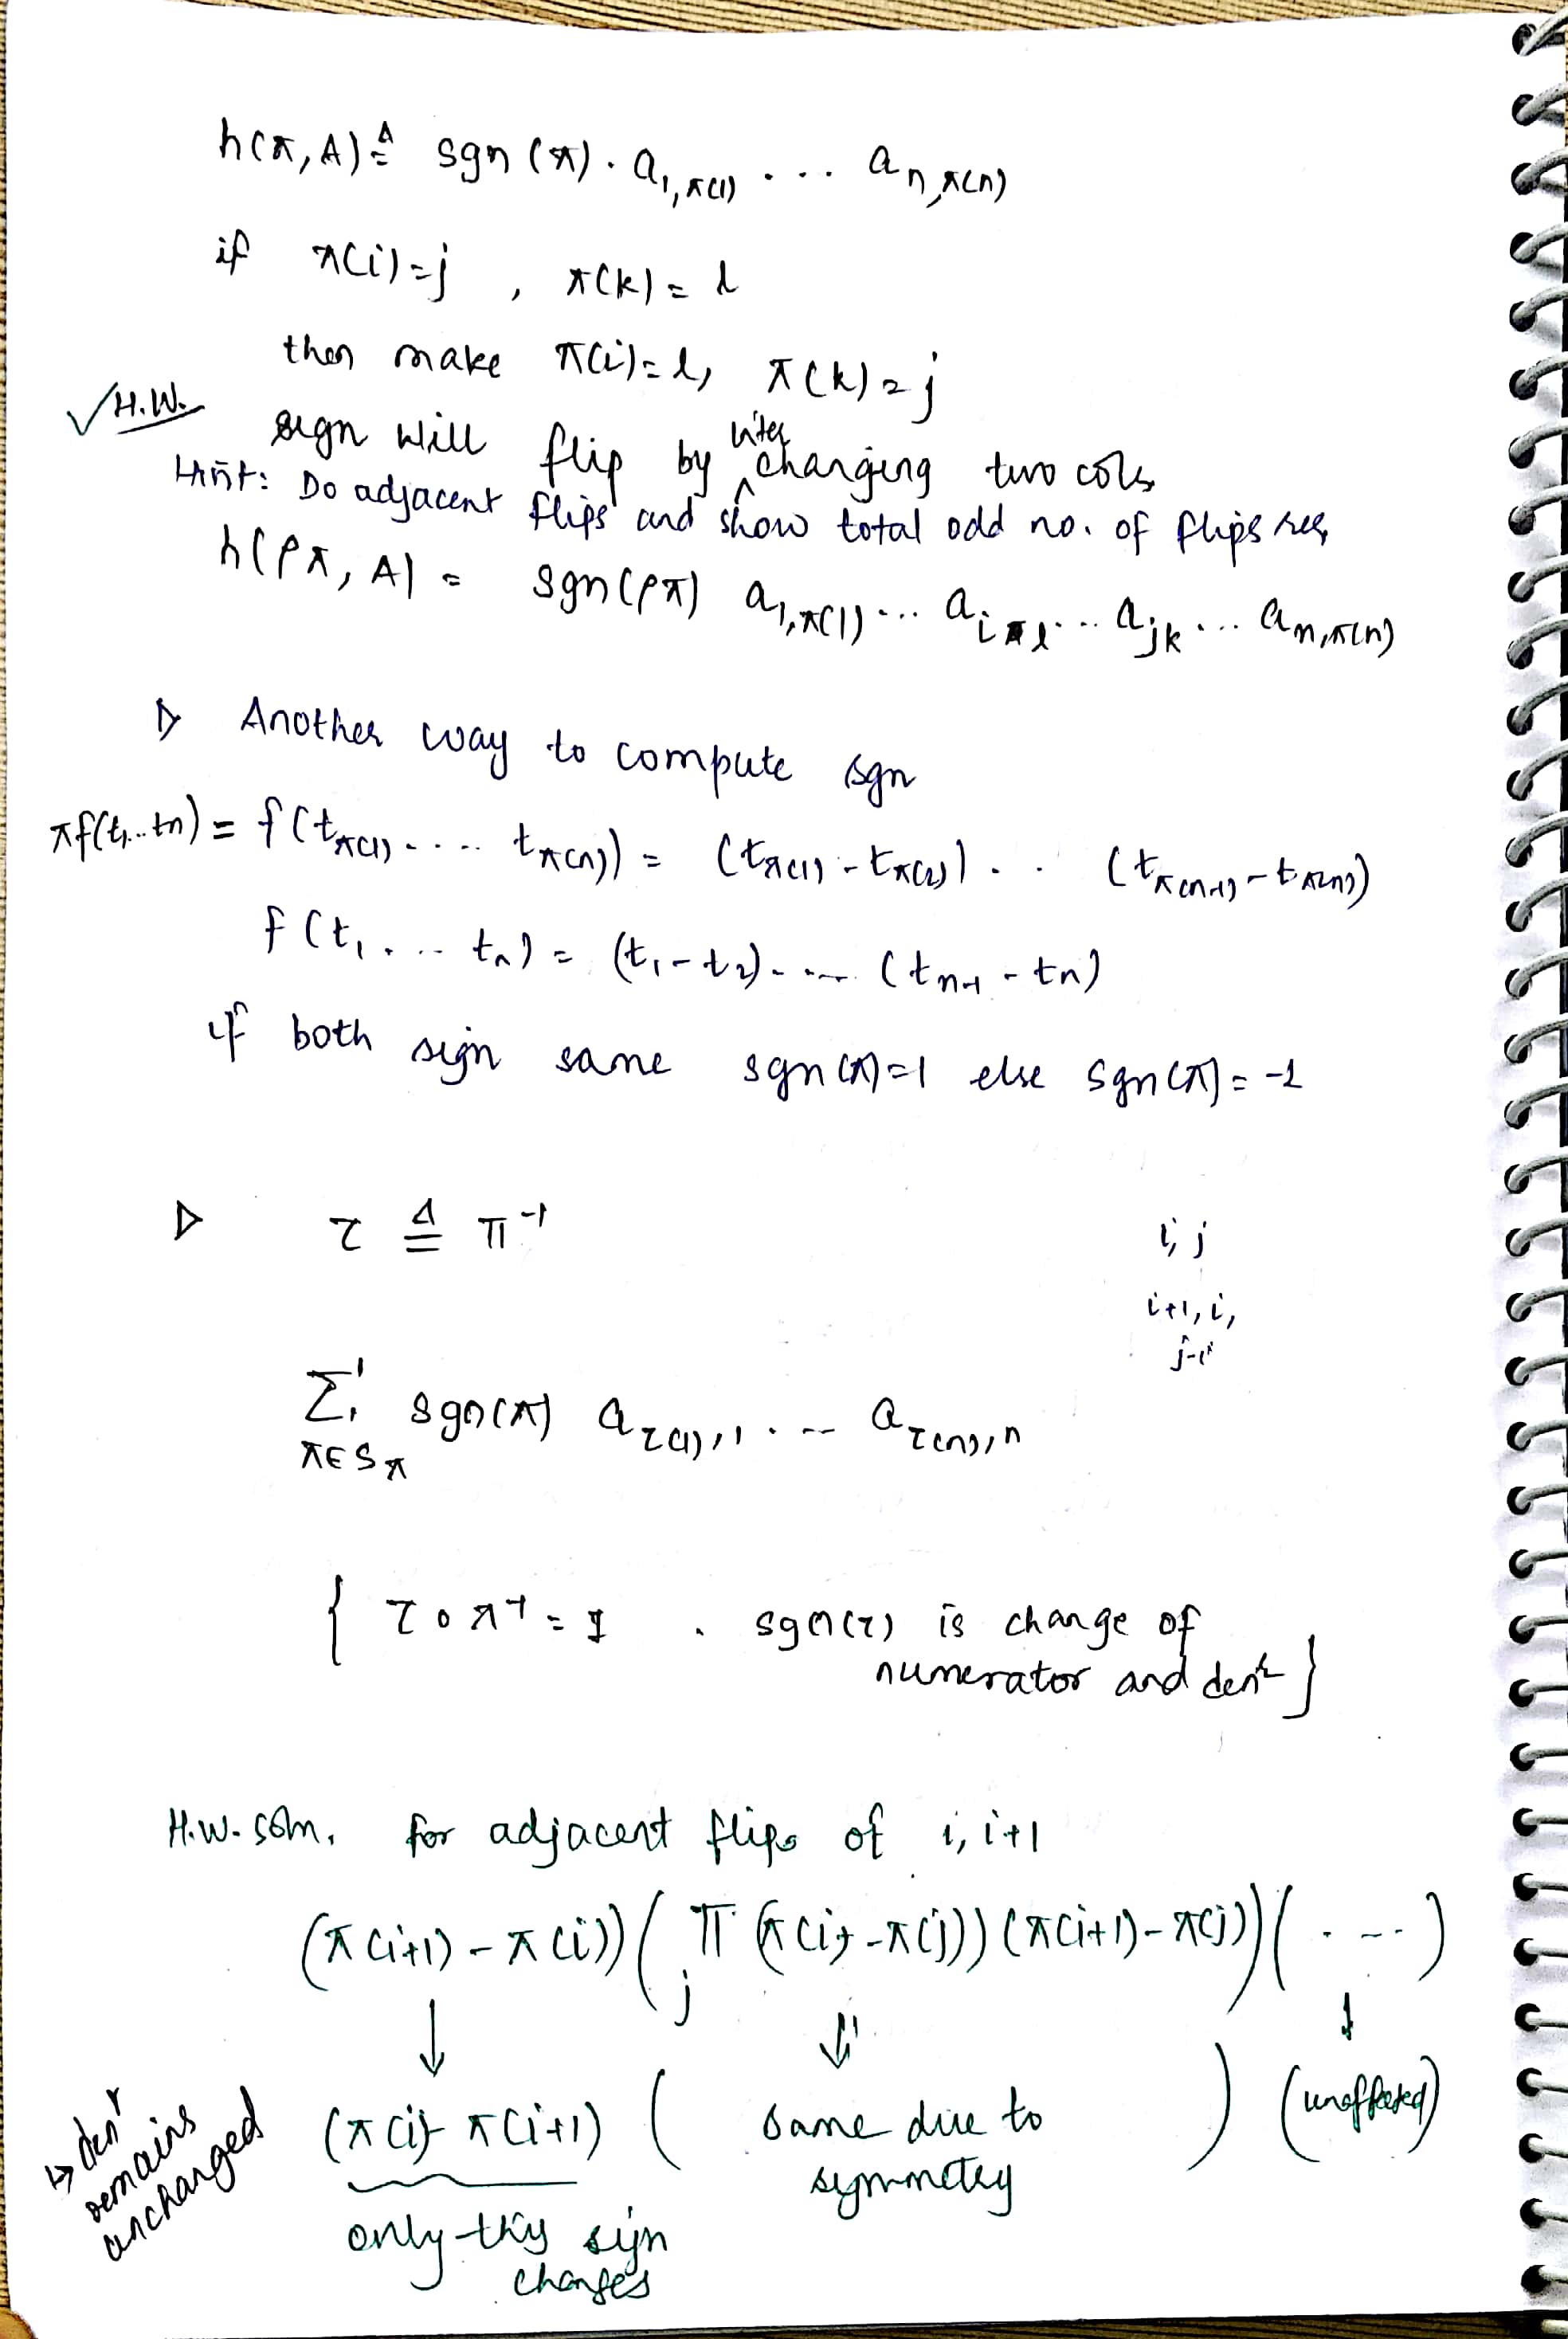 h(π, A) ≜ sgn(π) · a₁,π(1) . . . aₙ,π(n)
if π(i) = j , π(k) = l
then make π(i) = l, π(k) = j
✓ H.W. sign will flip by interchanging two cols
Hint: Do adjacent flips and show total odd no. of flips req
h(ρπ, A) = sgn(ρπ) a₁,π(1) ... a i l ... a jk ... a n,π(n)
▷ Another way to compute sgn
πf(t₁..tn) = f(tπ(1) . . . . tπ(n)) = (tπ(1) - tπ(2)) . . (tπ(n-1) - tπ(n))
f(t₁ . ... tn) = (t₁ - t₂) . ... (tn-1 - tn)
if both sign same sgn(π)=1 else sgn(π) = -1
▷ τ ≜ π⁻¹
i, j
i+1, i,
j-i
Σ sgn(π) aτ(1),1 . ... aτ(n),n
π∈Sπ
{ τ o π⁻¹ = I . sgn(τ) is change of
numerator and denr }
H.W. soln. for adjacent flips of i, i+1
(π(i+1) - π(i)) ( Π (π(i) - π(j)) (π(i+1) - π(j)) ) ( . --- )
j
↓ ⇓ ↓
↳ denr remains unchanged
(π(i) - π(i+1)) ( same due to symmetry ) (unaffected)
only this sign
changes